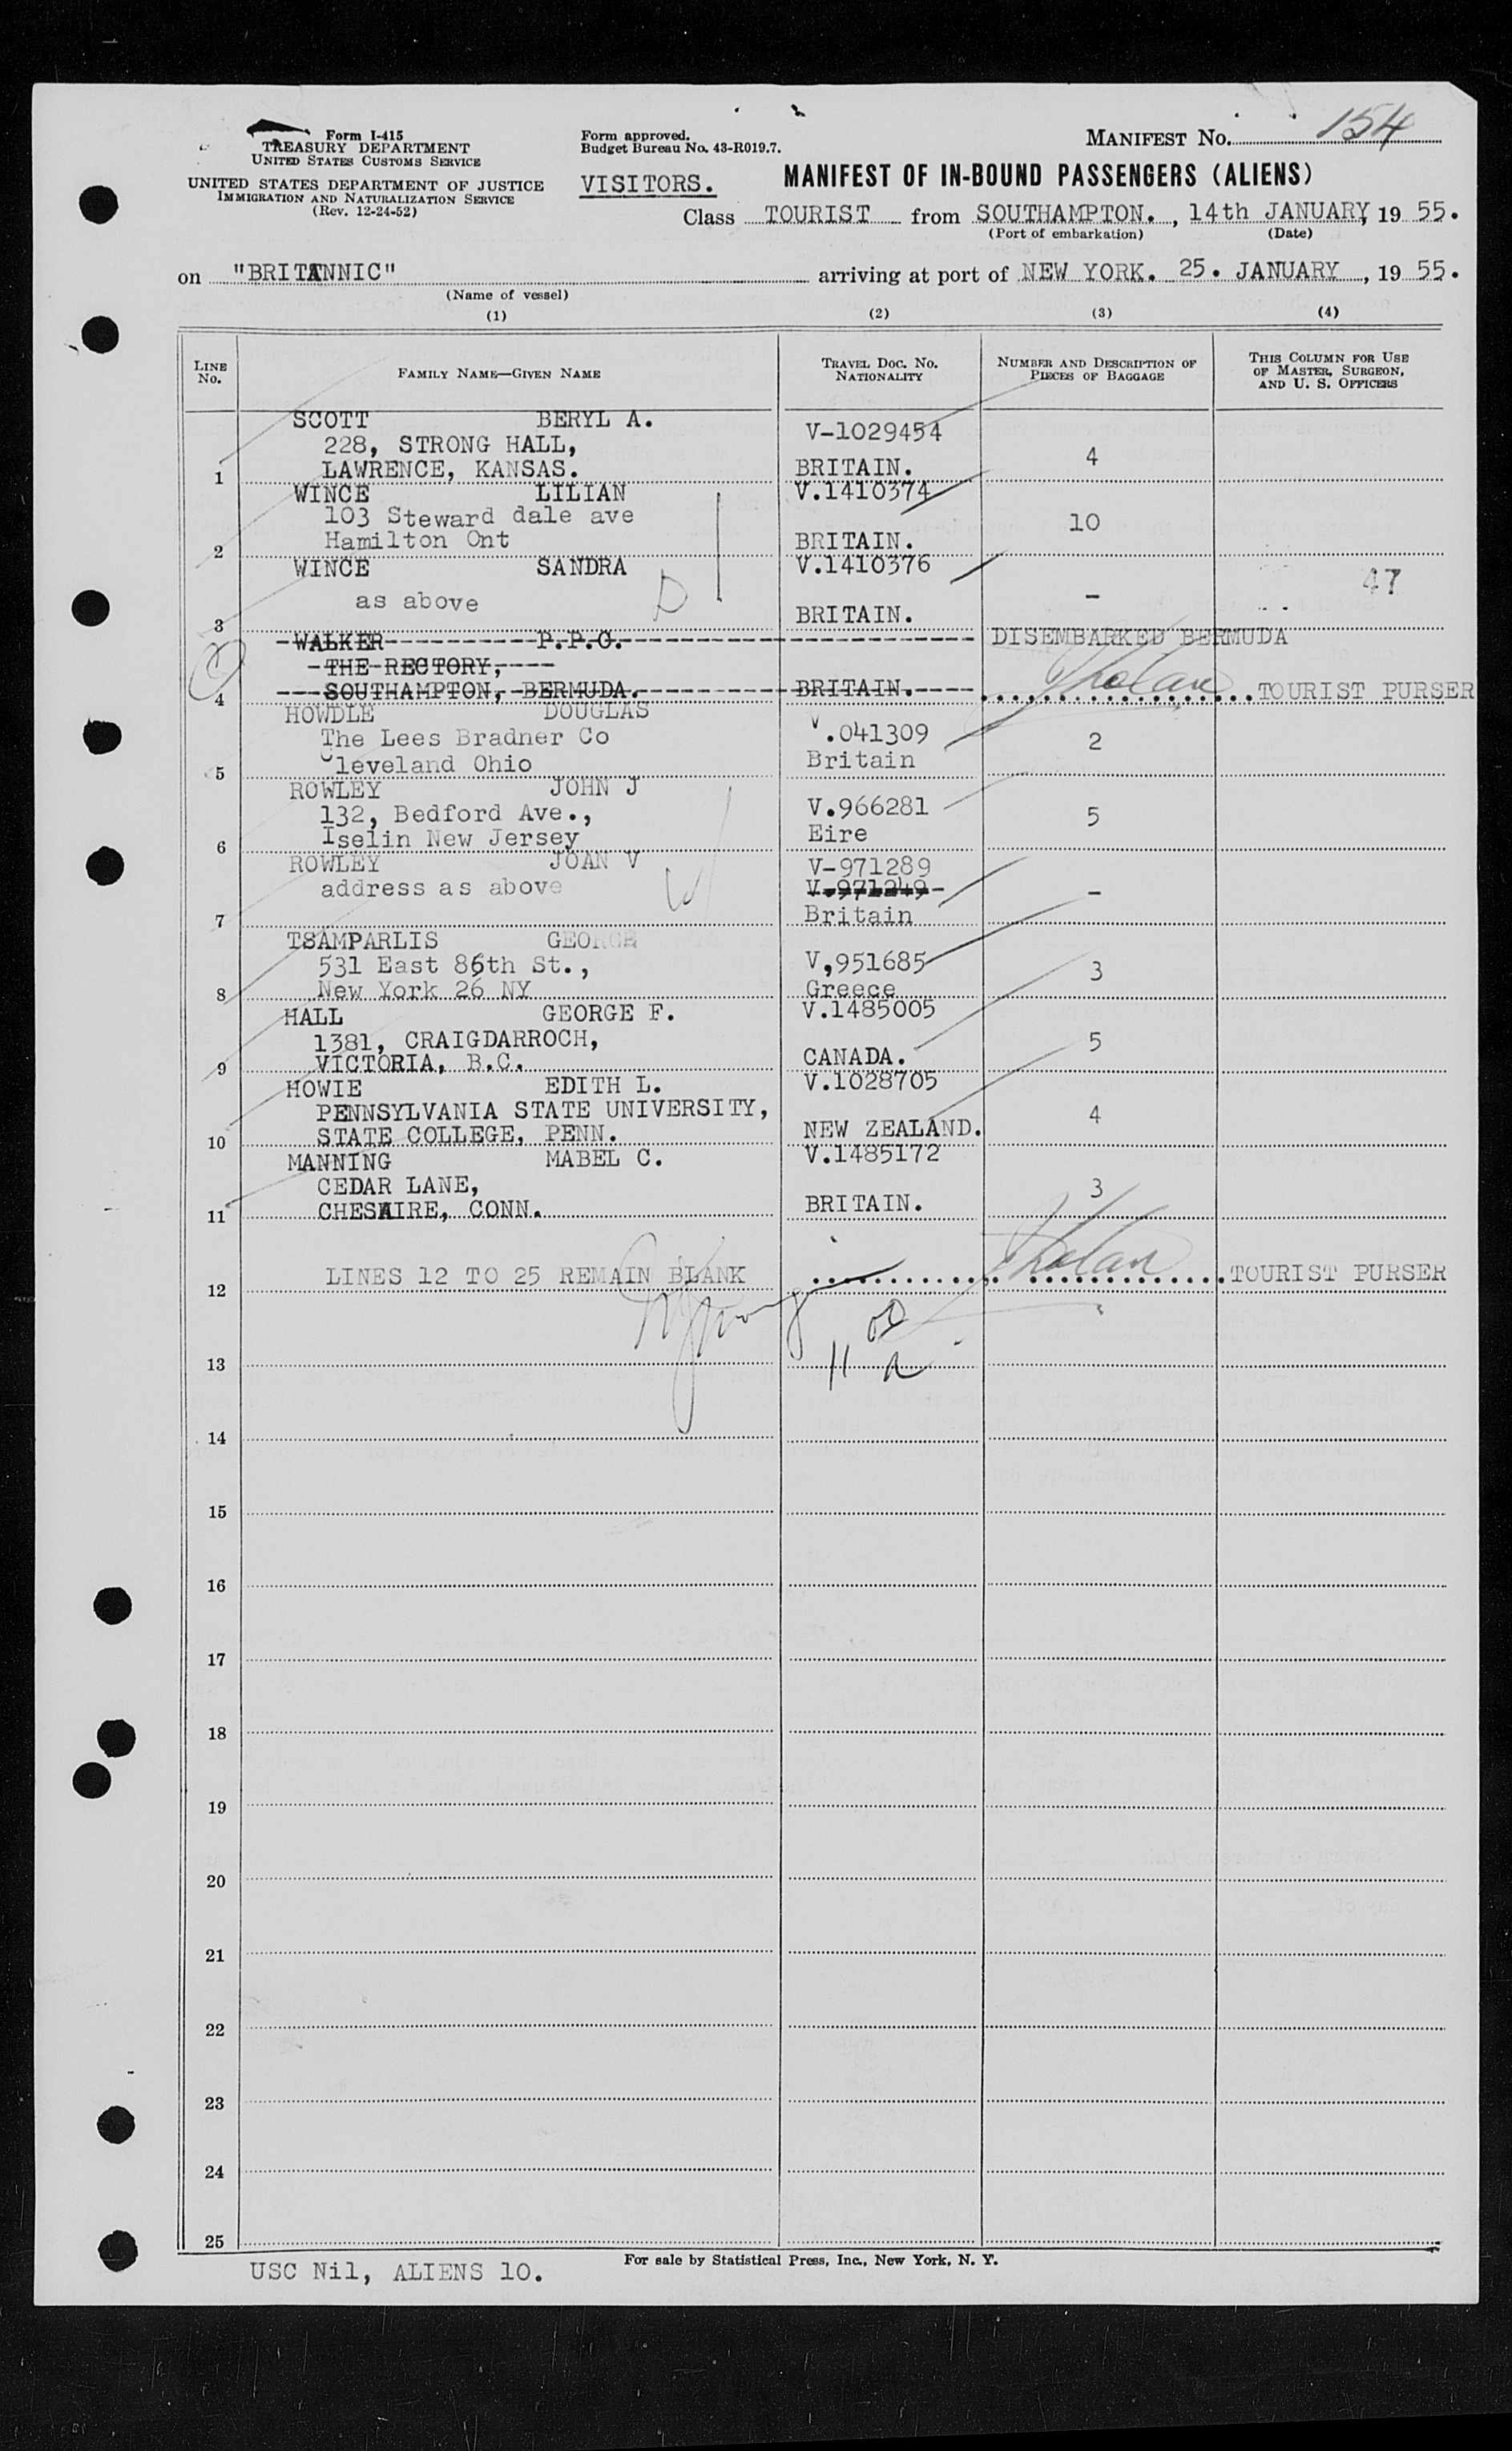 Form I-415
TREASURY DEPARTMENT
UNITED STATES CUSTOMS SERVICE
UNITED STATES DEPARTMENT OF JUSTICE
IMMIGRATION AND NATURALIZATION SERVICE
(Rev. 12-24-52)
Form approved.
Budget Bureau No. 43-R019.7.
MANIFEST No. 154
VISITORS.
MANIFEST OF IN-BOUND PASSENGERS (ALIENS)
Class TOURIST from SOUTHAMPTON., 14th JANUARY, 19 55.
(Port of embarkation) (Date)
on "BRITANNIC" arriving at port of NEW YORK. 25. JANUARY, 19 55.
(Name of vessel)
(1) (2) (3) (4)
LINE No. FAMILY NAME—GIVEN NAME TRAVEL DOC. NO. NATIONALITY NUMBER AND DESCRIPTION OF PIECES OF BAGGAGE THIS COLUMN FOR USE OF MASTER, SURGEON, AND U. S. OFFICERS
SCOTT BERYL A. V-1029454
228, STRONG HALL, 4
1 LAWRENCE, KANSAS. BRITAIN.
WINCE LILIAN V.1410374
103 Steward dale ave 10
2 Hamilton Ont BRITAIN.
WINCE SANDRA V.1410376
as above D - 47
3 BRITAIN.
WALKER P.P.G. DISEMBARKED BERMUDA
THE RECTORY,
4 SOUTHAMPTON, BERMUDA. BRITAIN. TOURIST PURSER
HOWDLE DOUGLAS V.041309
The Lees Bradner Co 2
5 Cleveland Ohio Britain
ROWLEY JOHN J V.966281
132, Bedford Ave., 5
6 Iselin New Jersey Eire
ROWLEY JOAN V V-971289
address as above V.971249 -
7 Britain
TSAMPARLIS GEORGE V,951685
531 East 86th St., 3
8 New York 26 NY Greece
HALL GEORGE F. V.1485005
1381, CRAIGDARROCH, 5
9 VICTORIA, B.C. CANADA.
HOWIE EDITH L. V.1028705
PENNSYLVANIA STATE UNIVERSITY, 4
10 STATE COLLEGE, PENN. NEW ZEALAND.
MANNING MABEL C. V.1485172
CEDAR LANE, 3
11 CHESHIRE, CONN. BRITAIN.
12 LINES 12 TO 25 REMAIN BLANK TOURIST PURSER
13 11 a
14
15
16
17
18
19
20
21
22
23
24
25
For sale by Statistical Press, Inc., New York, N. Y.
USC Nil, ALIENS 10.